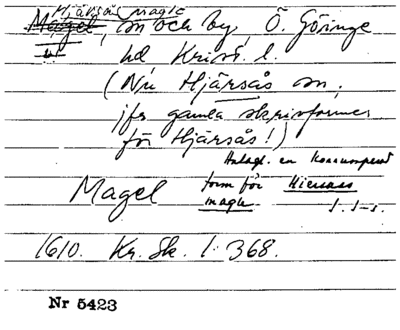 Hjärsås magle
Magel, sn och by, Ö. Göinge
hd, Krist. l.
(Nu Hjärsås sn,
jfr gamla skrivformer
för Hjärsås!)
Antagl. en korrumperad
Magel form för Hiersaas
magle
1610. Kr. Sk. l. 368.
Nr 5423